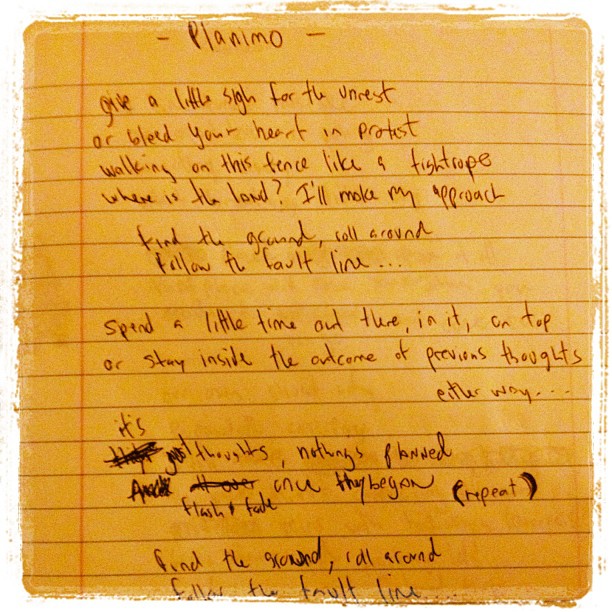 - Planimo -
give a little sigh for the unrest
or bleed your heart in protest
walking on this fence like a tightrope
where is the land? I'll make my approach
find the ground, roll around
follow the fault line...
spend a little time out there, in it, on top
or stay inside the outcome of previous thoughts
either way....
it's
just thoughts, nothing's planned
it's over once they began (repeat)
flash & fade
find the ground, roll around
follow the fault line....